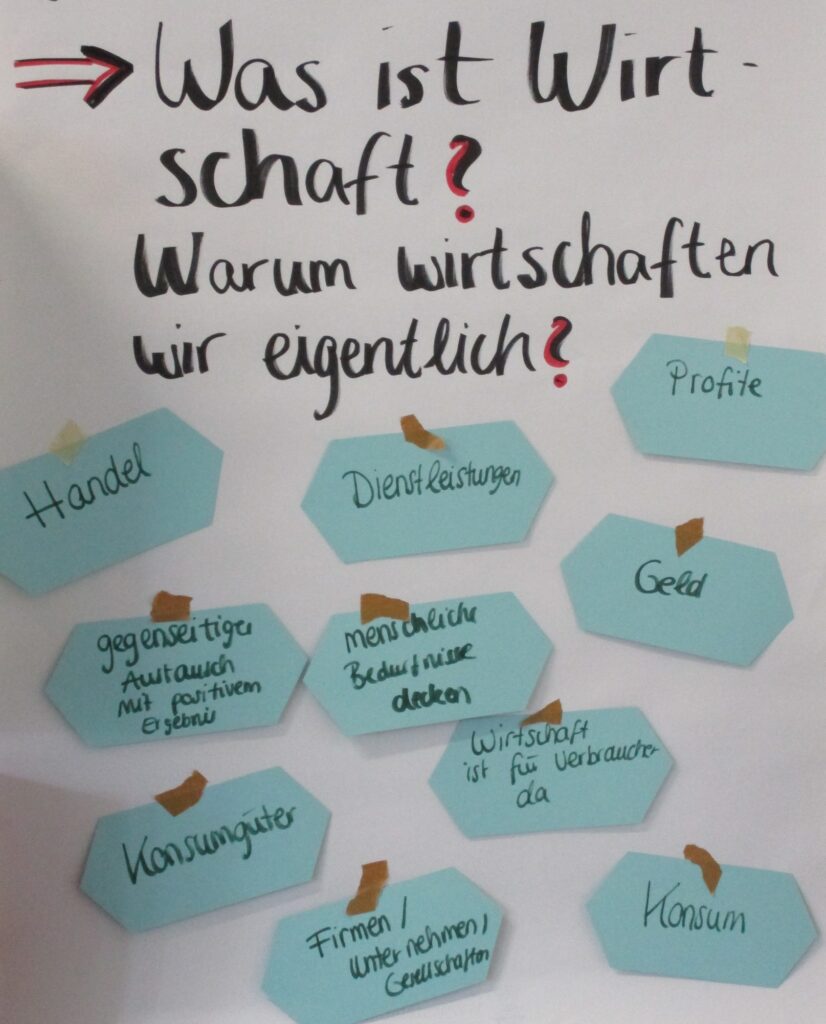 Was ist Wirt-
schaft?
Warum wirtschaften
wir eigentlich?
Profite
Handel
Dienstleistungen
Geld
gegenseitiger
Austausch
mit positivem
Ergebnis
menschliche
Bedürfnisse
decken
Wirtschaft
ist für Verbraucher
da
Konsumgüter
Firmen /
Unternehmen /
Gesellschaften
Konsum